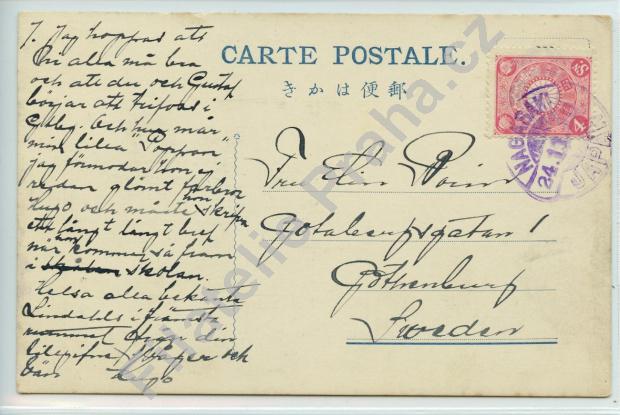 7. Jag hoppas att
Ni alla må bra
och att du och Gustaf
börjar att trifvas i
Gbg. Och hur mår
min lilla
jag förmodar hon
redan glömt farbror
Hugo och måste hon skrifva
ett långt långt bref
när hon kommer så fram
i skolan.
Helsa alla bekanta
Lindahls i främsta
din
och
Hugo
CARTE POSTALE.
きかは便郵
Fru Elin
Götabergsgatan 1
Gothenburg
Sweden
NAGASAKI
24.11
JAPAN
4 Sn
Filatelie Praha.cz